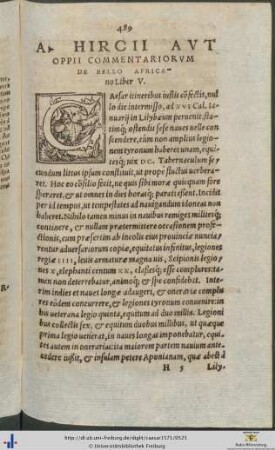 489
A. HIRCII AVT
OPPII COMMENTARIORVM
DE BELLO AFRICA-
no Liber V.
CAEsar itineribus iustis cōfectis, nul
lo die intermisso, ad XVI Cal. Ia-
nuarij in Lilybæum peruenit, stati
mq; ostendit sese naues uelle con
scendere, cùm non amplius legio-
nem tyronum haberet unam, equi-
tesq; uix DC. Tabernaculum se-
cundum littus ipsum constituit, ut propè fluctus uerbera-
ret. Hoc eo cōsilio fecit, ne quis sibi moræ quicquam fore
speraret, & ut omnes in dies horasq; parati essent. Incidit
per id tempus, ut tempestates ad nauigandum idoneas non
haberet. Nihilo tamen minus in nauibus remiges militesq;
continere, & nullam prætermittere occasionem profe-
ctionis, cùm præsertim ab incolis eius prouinciæ nuncia-
rentur aduersariorum copiæ, equitatus infinitus, legiones
regiæ IIII, leuis armaturæ magna uis, Scipionis legio-
nes X, elephanti centum XX, classesq; esse complures: ta-
men non deterrebatur, animoq; & spe confidebat. Inte-
rim indies et naues longæ adaugeri, & onerariæ complu
res eòdem concurrere, & legiones tyronum conuenire: in
his ueterana legio quinta, equitum ad duo millia. Legioni
bus collectis sex, & equitum duobus millibus, ut quæque
prima legio uenerat, in naues longas imponebatur, equi-
tes autem in onerarias: ita maiorem partem nauium ante-
cedere iußit, & insulam petere Aponianam, quæ abest à
H 5 Lily-
R.
http://dl.ub.uni-freiburg.de/diglit/caesar1571/0525
© Universitätsbibliothek Freiburg